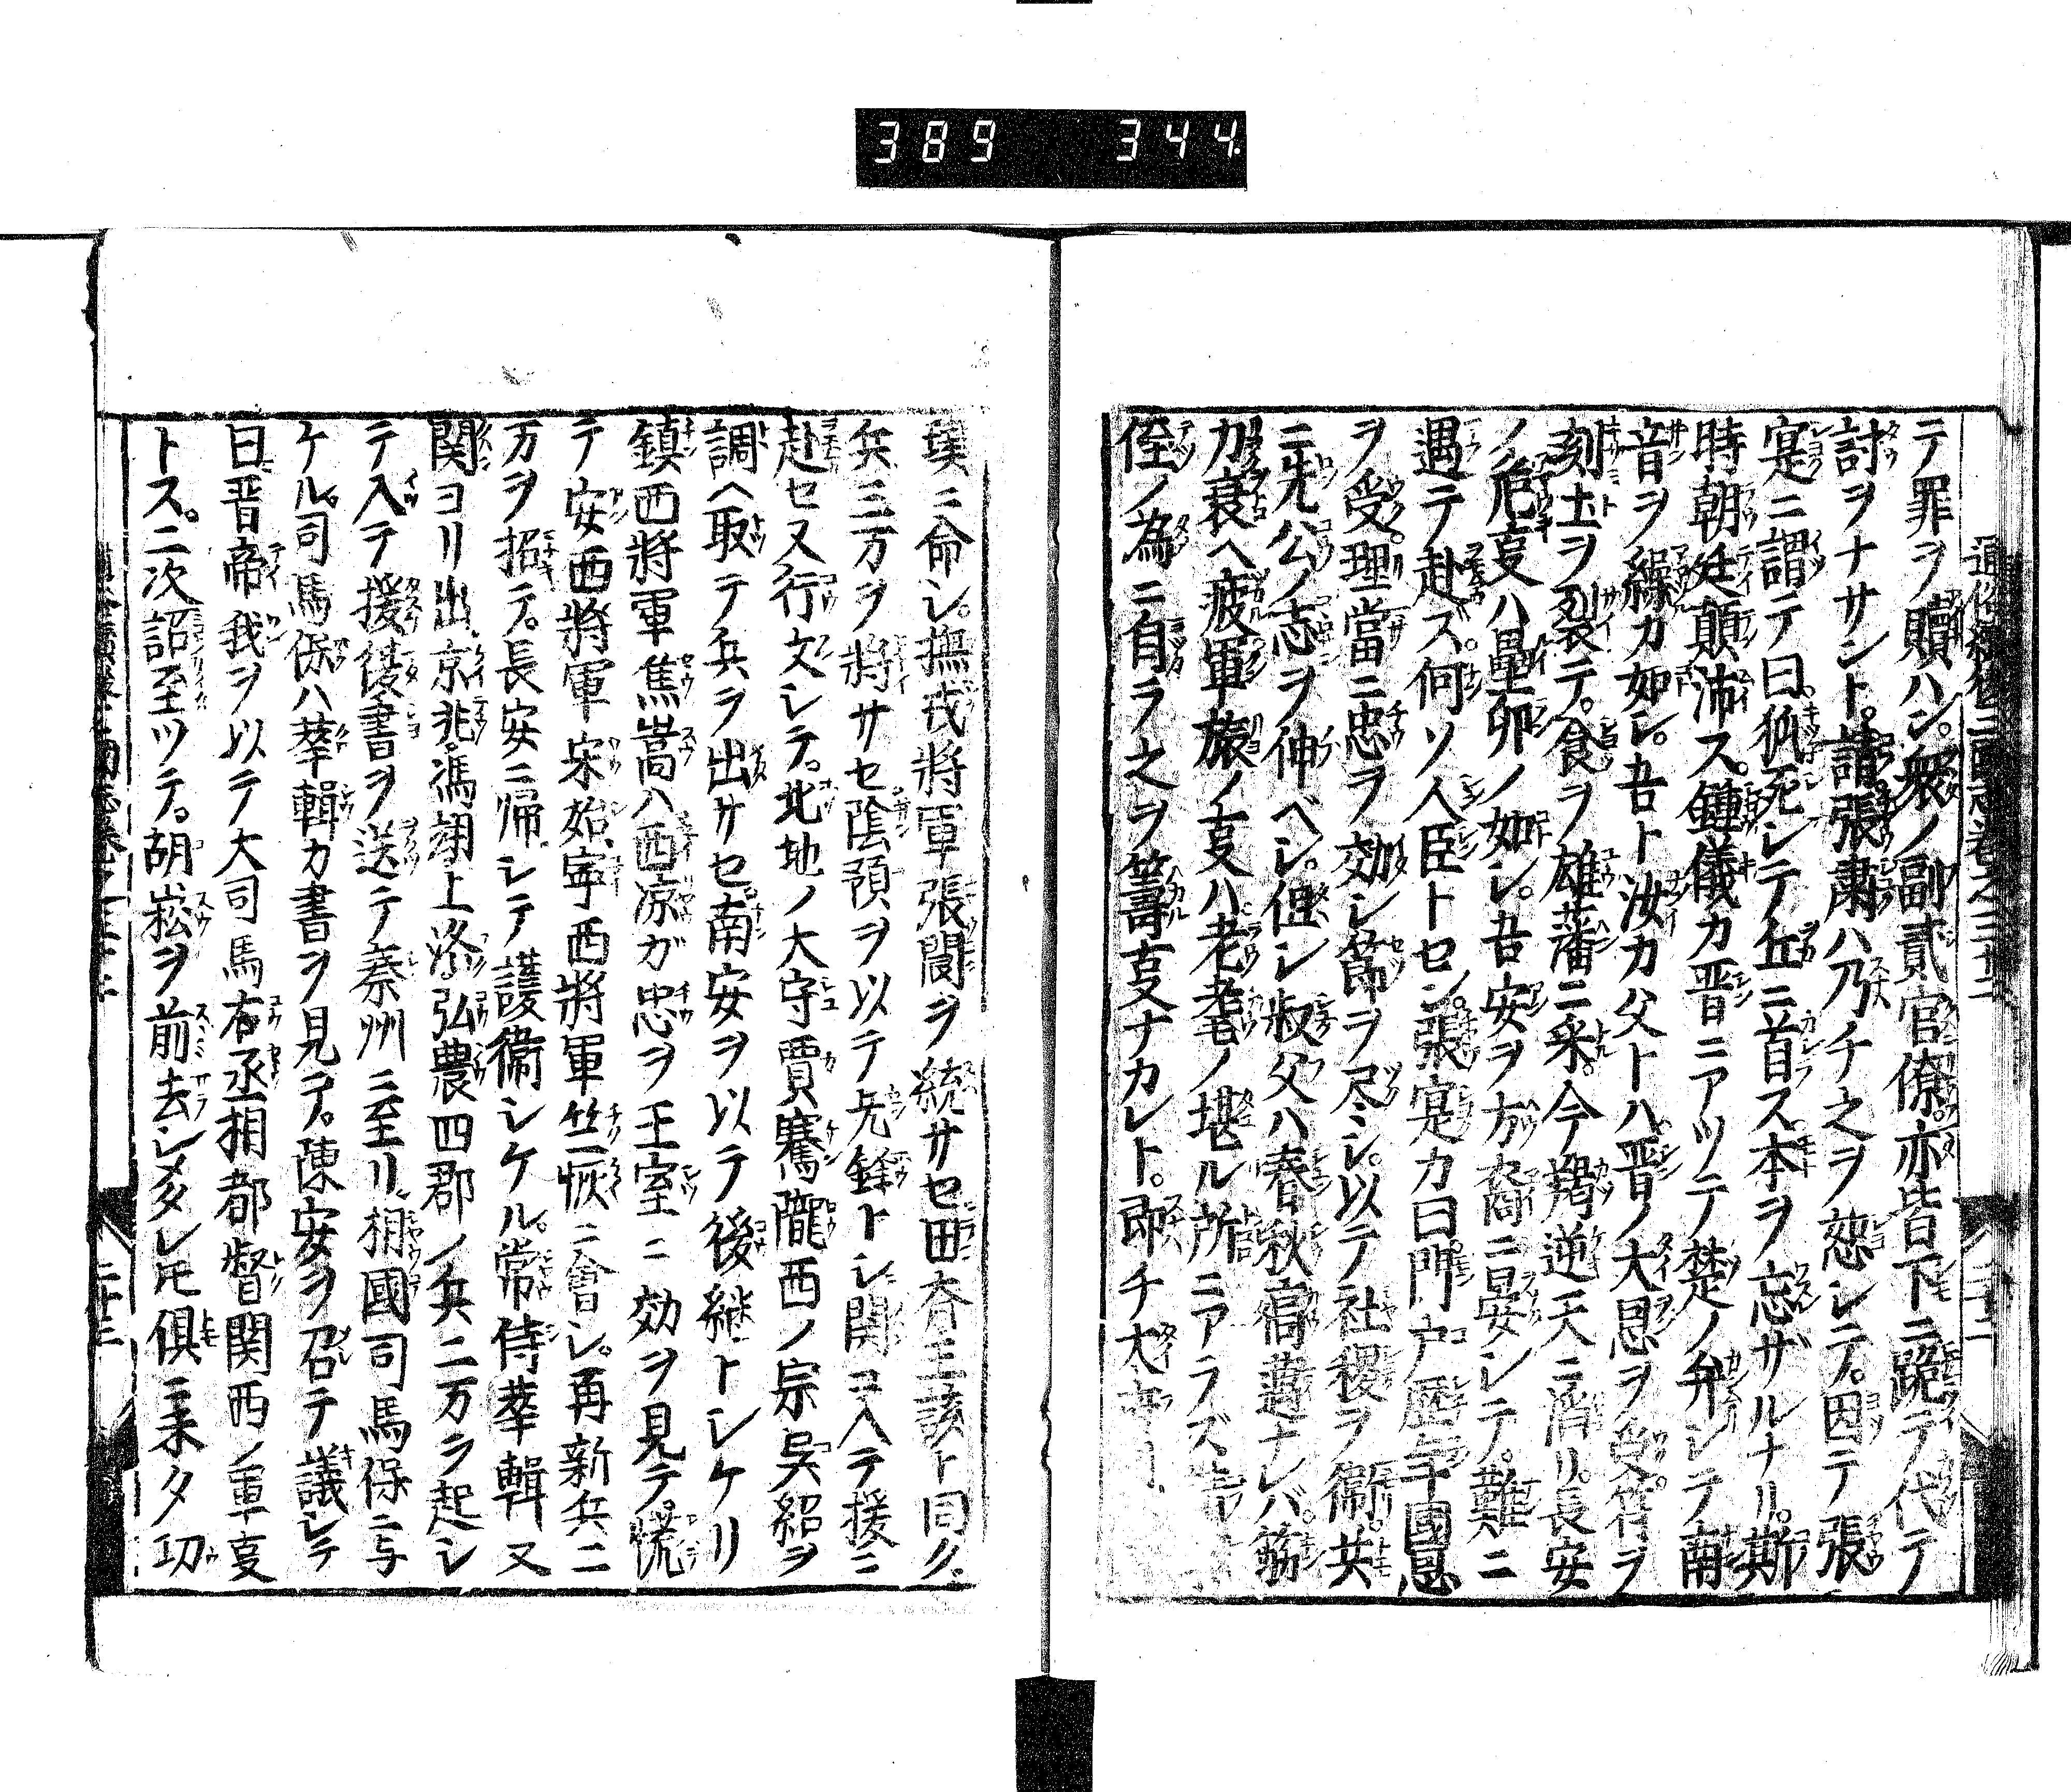 389 344
通俗續後三國志卷之三十二
テ罪ヲ贖ハン。衆ノ副貳官僚。亦皆下ニ跪テ代テ
討ヲナサント。請張肅ハ乃チ之ヲ恕シテ。因テ張
寔ニ謂テ曰。狐死シテ丘ニ首ス。本ヲ忘ザルナリ。斯
時朝廷顛沛ス。鍾儀カ晋ニアツテ楚ノ弁シテ南
音ヲ繰カ如シ。吾ト汝カ父トハ。晋ノ大恩ヲ受。符ヲ
刻土ヲ裂テ。食ヲ雄藩ニ采。今羯逆天ニ滔リ。長安
ノ危亨ハ壘卵ノ如シ。吾安ヲ方裔ニ晏シテ。難ニ
遇テ赴ズ。何ソ人臣トセン。張寔カ曰。門戸歴年國恩
ヲ受。理當ニ忠ヲ効シ節ヲ尽シ。以テ社稷ヲ衞。共
ニ先公ノ志ヲ伸ベシ。但シ叔父ハ春秋高邁ナレバ。筋
力衰ヘ疲軍旅ノ亨ハ。老耄ノ堪ル所ニアラズ
侄ノ為ニ自ラ之ヲ籌亨ナカレト。即チ大
二十二
璞ニ命シ。撫戎將軍張閬ヲ統サセ田斉王該ト同ク。
兵三万ヲ將サセ陰預ヲ以テ先鋒トシ関ヨヘテ援ニ
赴セ又行文シテ。北地ノ大守賈騫隴西ノ宗呉紹ヲ
調ヘ取テ兵ヲ出サセ。南安ヲ以テ後継トシケリ
鎮西將軍焦嵩ハ西凉ガ忠ヲ王室ニ効ヲ見テ。慌
テ安西將軍宋始。寧西將軍竺恢ニ會シ。再新兵二
万ヲ招テ。長安ニ帰シテ護衞シケル。常侍華輯又
関ヨリ出。京兆。馮翊上洛弘農四郡ノ兵二万ヲ起シ
テ入テ援後書ヲ送テ秦州ニ至リ。相國司馬保ニ与
ケル。司馬保ハ華輯カ書ヲ見テ。陳安ヲ召テ議シテ
曰晋帝我ヲ以テ大司馬右丞相都督関西ノ軍亨
トス。二次詔至ツテ。胡崧ヲ前去シメタレ𪜈倶ニ未タ功
二十三